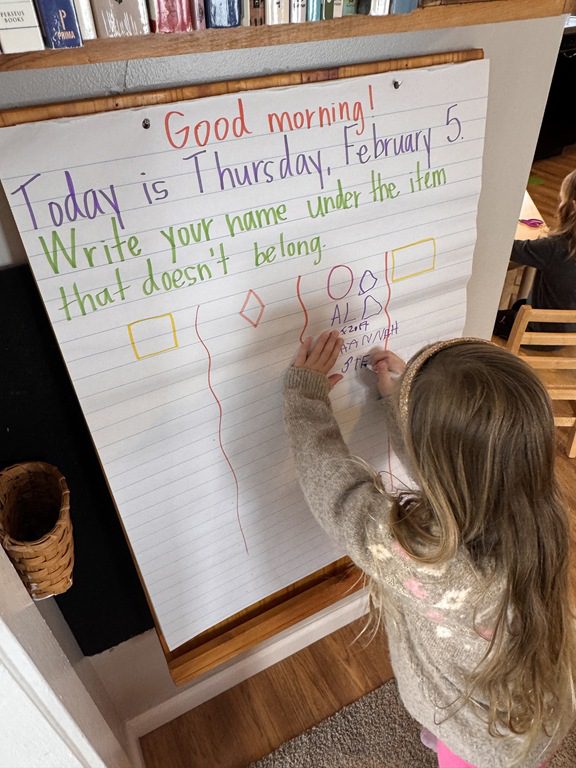 PERSEUS BOOKS
P PRIMA
Good morning!
Today is Thursday, February 5.
Write your name under the item
that doesn't belong.